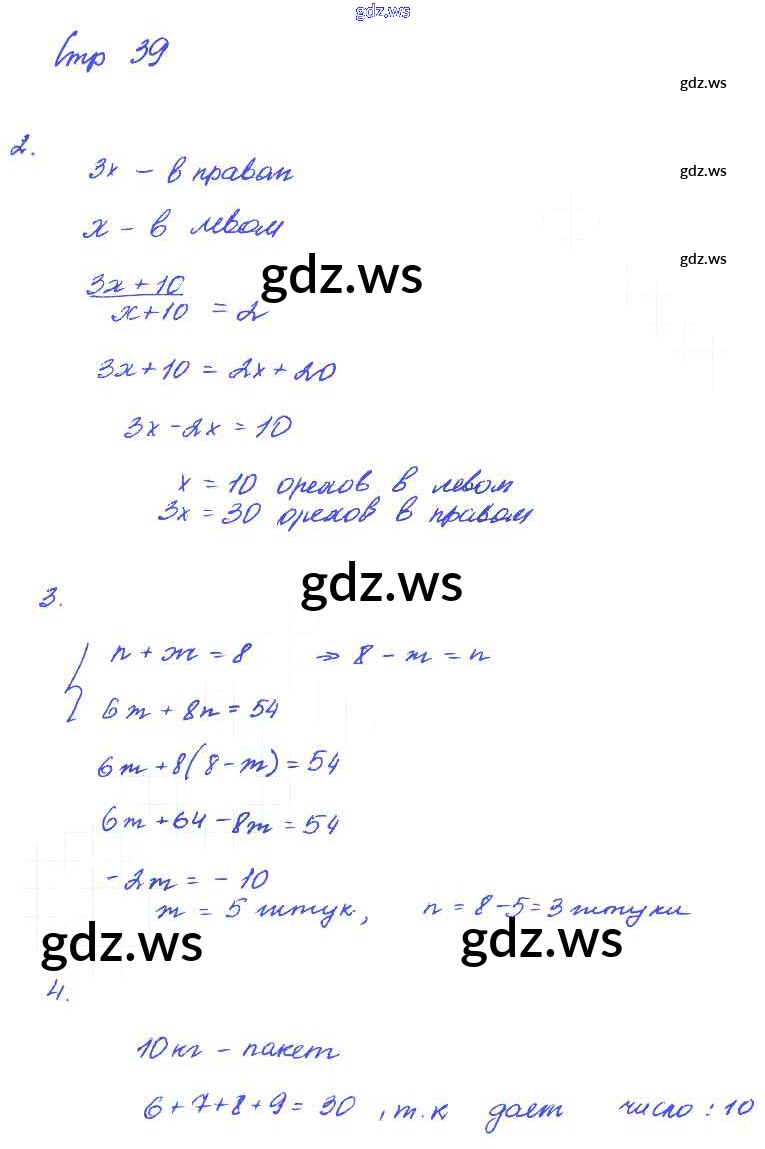 gdz.ws
Стр 39
gdz.ws
2.
3x - в правом
gdz.ws
x - в левом
gdz.ws
gdz.ws
3x + 10
x+10 = 2
3x+10 = 2x+20
3x-2x = 10
x = 10 орехов в левом
3x = 30 орехов в правом
gdz.ws
3.
n + m = 8 ⇒ 8 - m = n
6m + 8n = 54
6m+8(8-m) = 54
6m+64-8m = 54
-2m = -10
m = 5 штук, n = 8-5=3 штуки
gdz.ws gdz.ws
4.
10кг - пакет
6+7+8+9=30, т.к дает число : 10